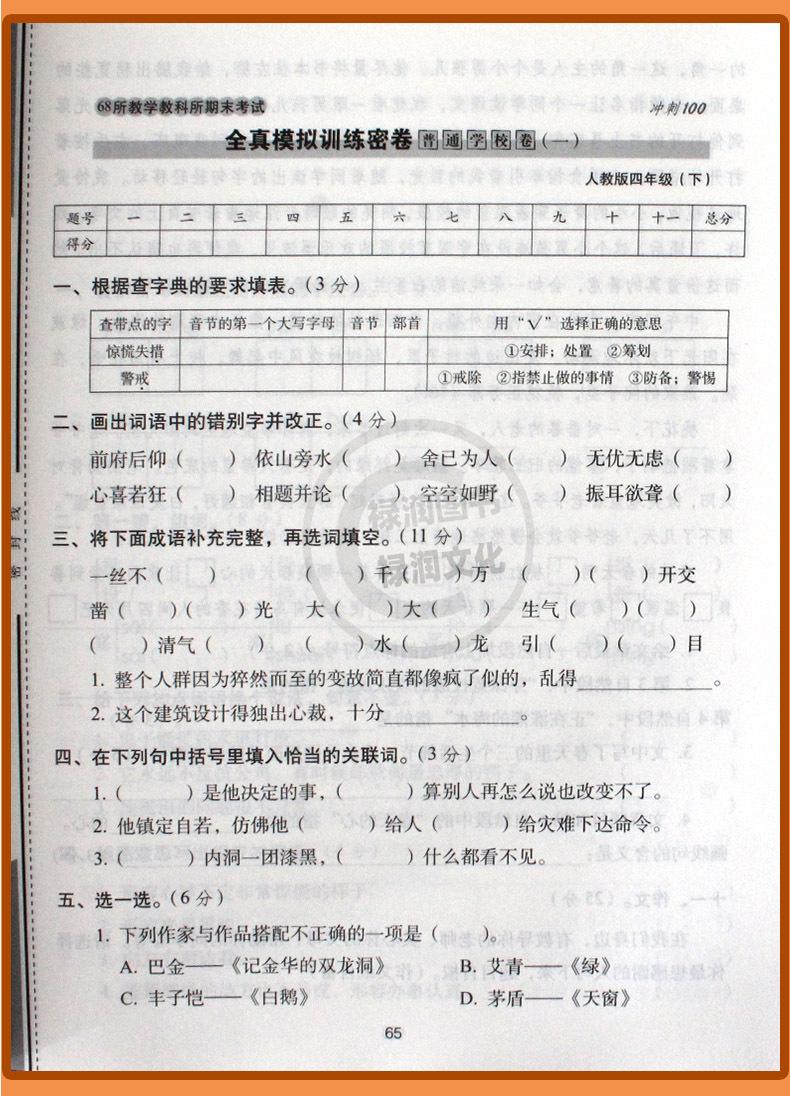 68所教学教科所期末考试
冲刺100
全真模拟训练密卷 普通学校卷(一)
人教版四年级(下)
题号 一 二 三 四 五 六 七 八 九 十 十一 总分
得分
一、根据查字典的要求填表。(3分)
查带点的字 音节的第一个大写字母 音节 部首 用“√”选择正确的意思
惊慌失措 ①安排；处置 ②筹划
警戒 ①戒除 ②指禁止做的事情 ③防备；警惕
二、画出词语中的错别字并改正。(4分)
前府后仰( ) 依山旁水( ) 舍已为人( ) 无优无虑( )
心喜若狂( ) 相题并论( ) 空空如野( ) 振耳欲聋( )
三、将下面成语补充完整，再选词填空。(11分)
一丝不( ) ( )千( )万 ( )( )开交
凿( )( )光 大( )大( ) 生气( )( )
( )清气( ) ( )水( )龙 引( )( )目
1. 整个人群因为猝然而至的变故简直都像疯了似的，乱得 。
2. 这个建筑设计得独出心裁，十分 。
四、在下列句中括号里填入恰当的关联词。(3分)
1.( )是他决定的事，( )算别人再怎么说也改变不了。
2. 他镇定自若，仿佛他( )给人( )给灾难下达命令。
3.( )内洞一团漆黑，( )什么都看不见。
五、选一选。(6分)
1. 下列作家与作品搭配不正确的一项是( )。
A. 巴金——《记金华的双龙洞》 B. 艾青——《绿》
C. 丰子恺——《白鹅》 D. 茅盾——《天窗》
65
线
封
密
禄润图书
禄润文化